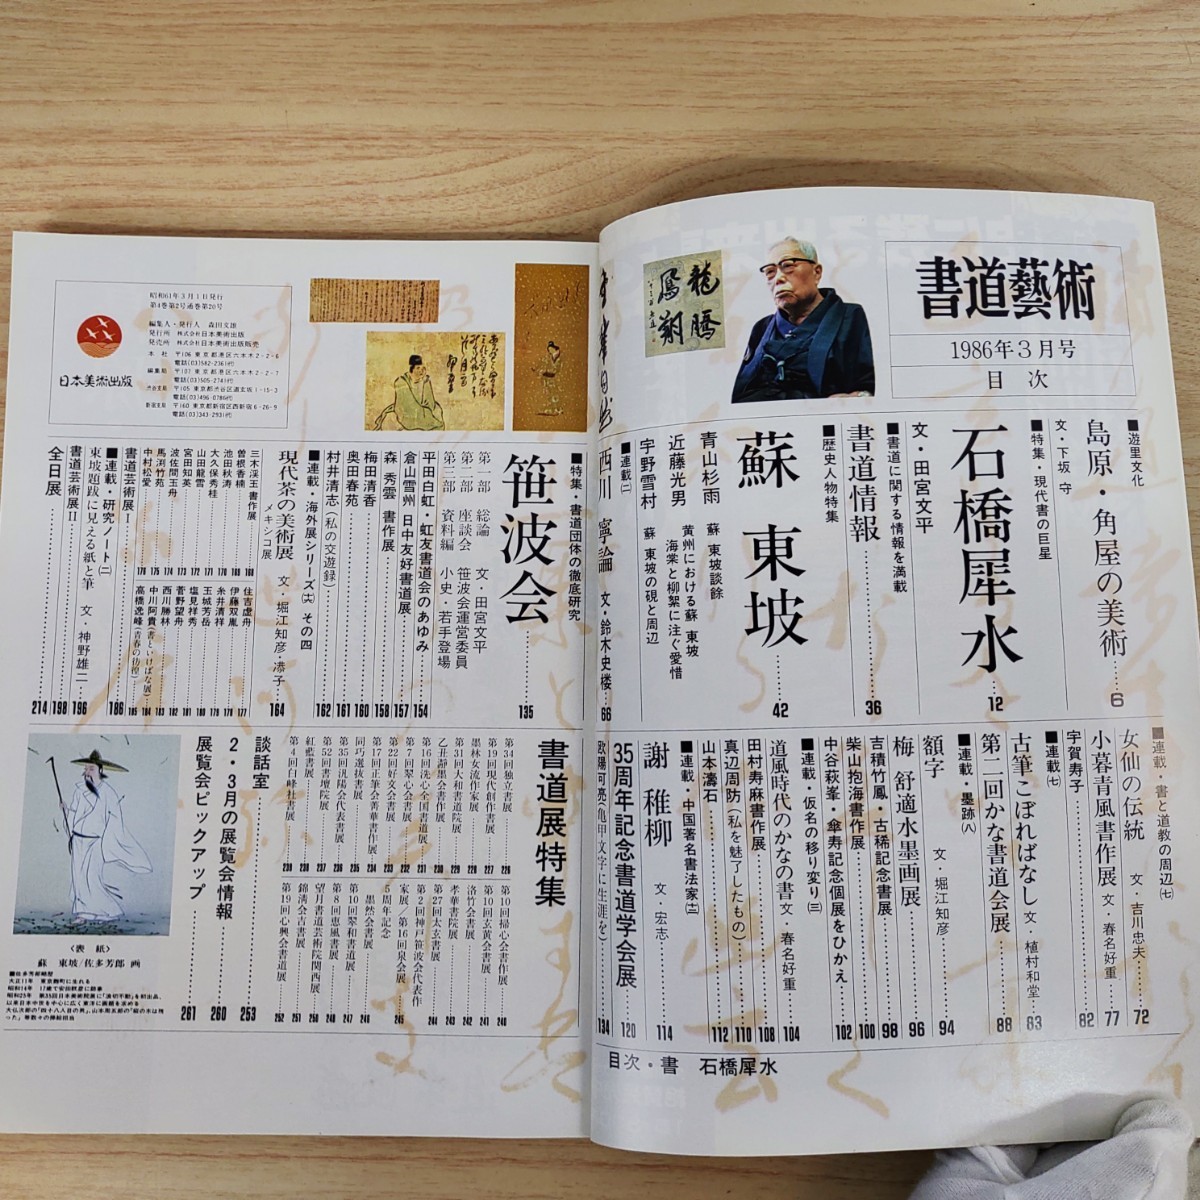 書道藝術
1986年3月号
目次
龍騰
鳳翔
■遊里文化
島原・角屋の美術……6
文・下坂 守
■特集・現代書の巨星
石橋犀水……12
文・田宮文平
■書道に関する情報を満載
書道情報……36
■歴史人物特集
蘇 東坡……42
青山杉雨 蘇 東坡談餘
近藤光男 黄州における蘇 東坡
海棠と柳絮に注ぐ愛惜
宇野雪村 蘇 東坡の硯と周辺
■連載㈡
西川 寧論 文・鈴木史楼……66
■連載・書と道教の周辺㈦
女仙の伝統 文・吉川忠夫……72
小暮青風書作展 文・春名好重……77
宇賀寿子……82
■連載㈦
古筆こぼればなし 文・植村和堂……83
第二回かな書道会展……88
■連載・墨跡㈧
額字 文・堀江知彦……94
梅 舒適水墨画展……96
吉積竹鳳・古稀記念書展……98
柴山抱海書作展……100
中谷萩峯・傘寿記念個展をひかえ……102
■連載・仮名の移り変り㈢
道風時代のかなの書 文・春名好重……104
田村寿麻書作展……108
真辺周防(私を魅了したもの)……110
山本濤石……112
■連載・中国著名書法家
謝 稚柳 文・宏志……114
35周年記念書道学会展……120
欧陽可亮(亀甲文字に生涯を)……134
目次・書 石橋犀水
昭和61年3月1日発行
第4巻第2号通巻第20号
編集人・発行人 森田文雄
発行所 株式会社日本美術出版
発売所 株式会社日本美術出版販売
本社 〒106 東京都港区六本木2-2-6
電話(03)582-236(代)
編集局 〒107 東京都港区六本木2-2-7
電話(03)505-274(代)
渋谷支局 〒105 東京都渋谷区道玄坂1-15-3
電話(03)496-0786(代)
新宿支局 〒160 東京都新宿区西新宿6-26-9
電話(03)343-293(代)
日本美術出版
■特集・書道団体の徹底研究
笹波会……135
第一部 総論 文・田宮文平
第二部 座談会 笹波会運営委員
第三部 資料編 小史・若手登場
平田白虹・虹友書道会のあゆみ……154
倉山雪州 日中友好書道展……157
森 秀雲 書作展……158
梅田清香……160
奥田春苑……161
村井清志(私の交遊録)……162
■連載・海外展シリーズ その四
現代茶の美術展 文・堀江知彦・恭子……164
メキシコ展
三木渓王書作展……168
曽根香楠……169
池田秋涛……170
大久保秀桂……171
山田龍雪……172
宮田知英……173
波佐間玉舟……174
馬渕竹苑……175
中村松愛……176
住吉虚舟……177
伊藤双胤……178
糸井清祥……179
玉城芳岳……180
塩見祥秀……181
菅野望舟……182
西川勝林……183
中川阿貴(書といけばな展)……184
高橋逸峰(青春の彷徨)……185
書道芸術展Ⅰ……186
■連載・研究ノート㈡
東坡題跋に見える紙と筆 文・神野雄二……196
書道芸術展Ⅱ……198
全日展……214
書道展特集
第34回独立書展
第19回現代創作書展
墨林女流作家展
第31回大和書道院展
乙丑静墨会書作展
第16回洗心全国書道展
第7回翠心会書展
第22回好文会書展
第17回正筆会善華書作展
第35回汎陽会代表書展
同巧選抜書展
第52回書壇院展
紅藍書展
第4回白峰社書展……230
第10回掃心会書作展……240
第10回玄黄会書展
洛竹会書展
孝華書院展
第27回太玄書展
第2回神戸笹波会代表作家展/第16回泉会展……245
5周年記念
墨然会書展
第10回翠和書道展
第8回恵風書展
望月書道芸術院関西展
錦清会吉書展
第19回心興会書道展……252
談話室……253
2・3月の展覧会情報……260
展覧会ピックアップ……261
〈表紙〉
蘇 東坡/佐多芳郎 画
■佐多芳郎略歴
大正11年 東京麹町に生れる
昭和14年 17歳で安田靫彦に師事